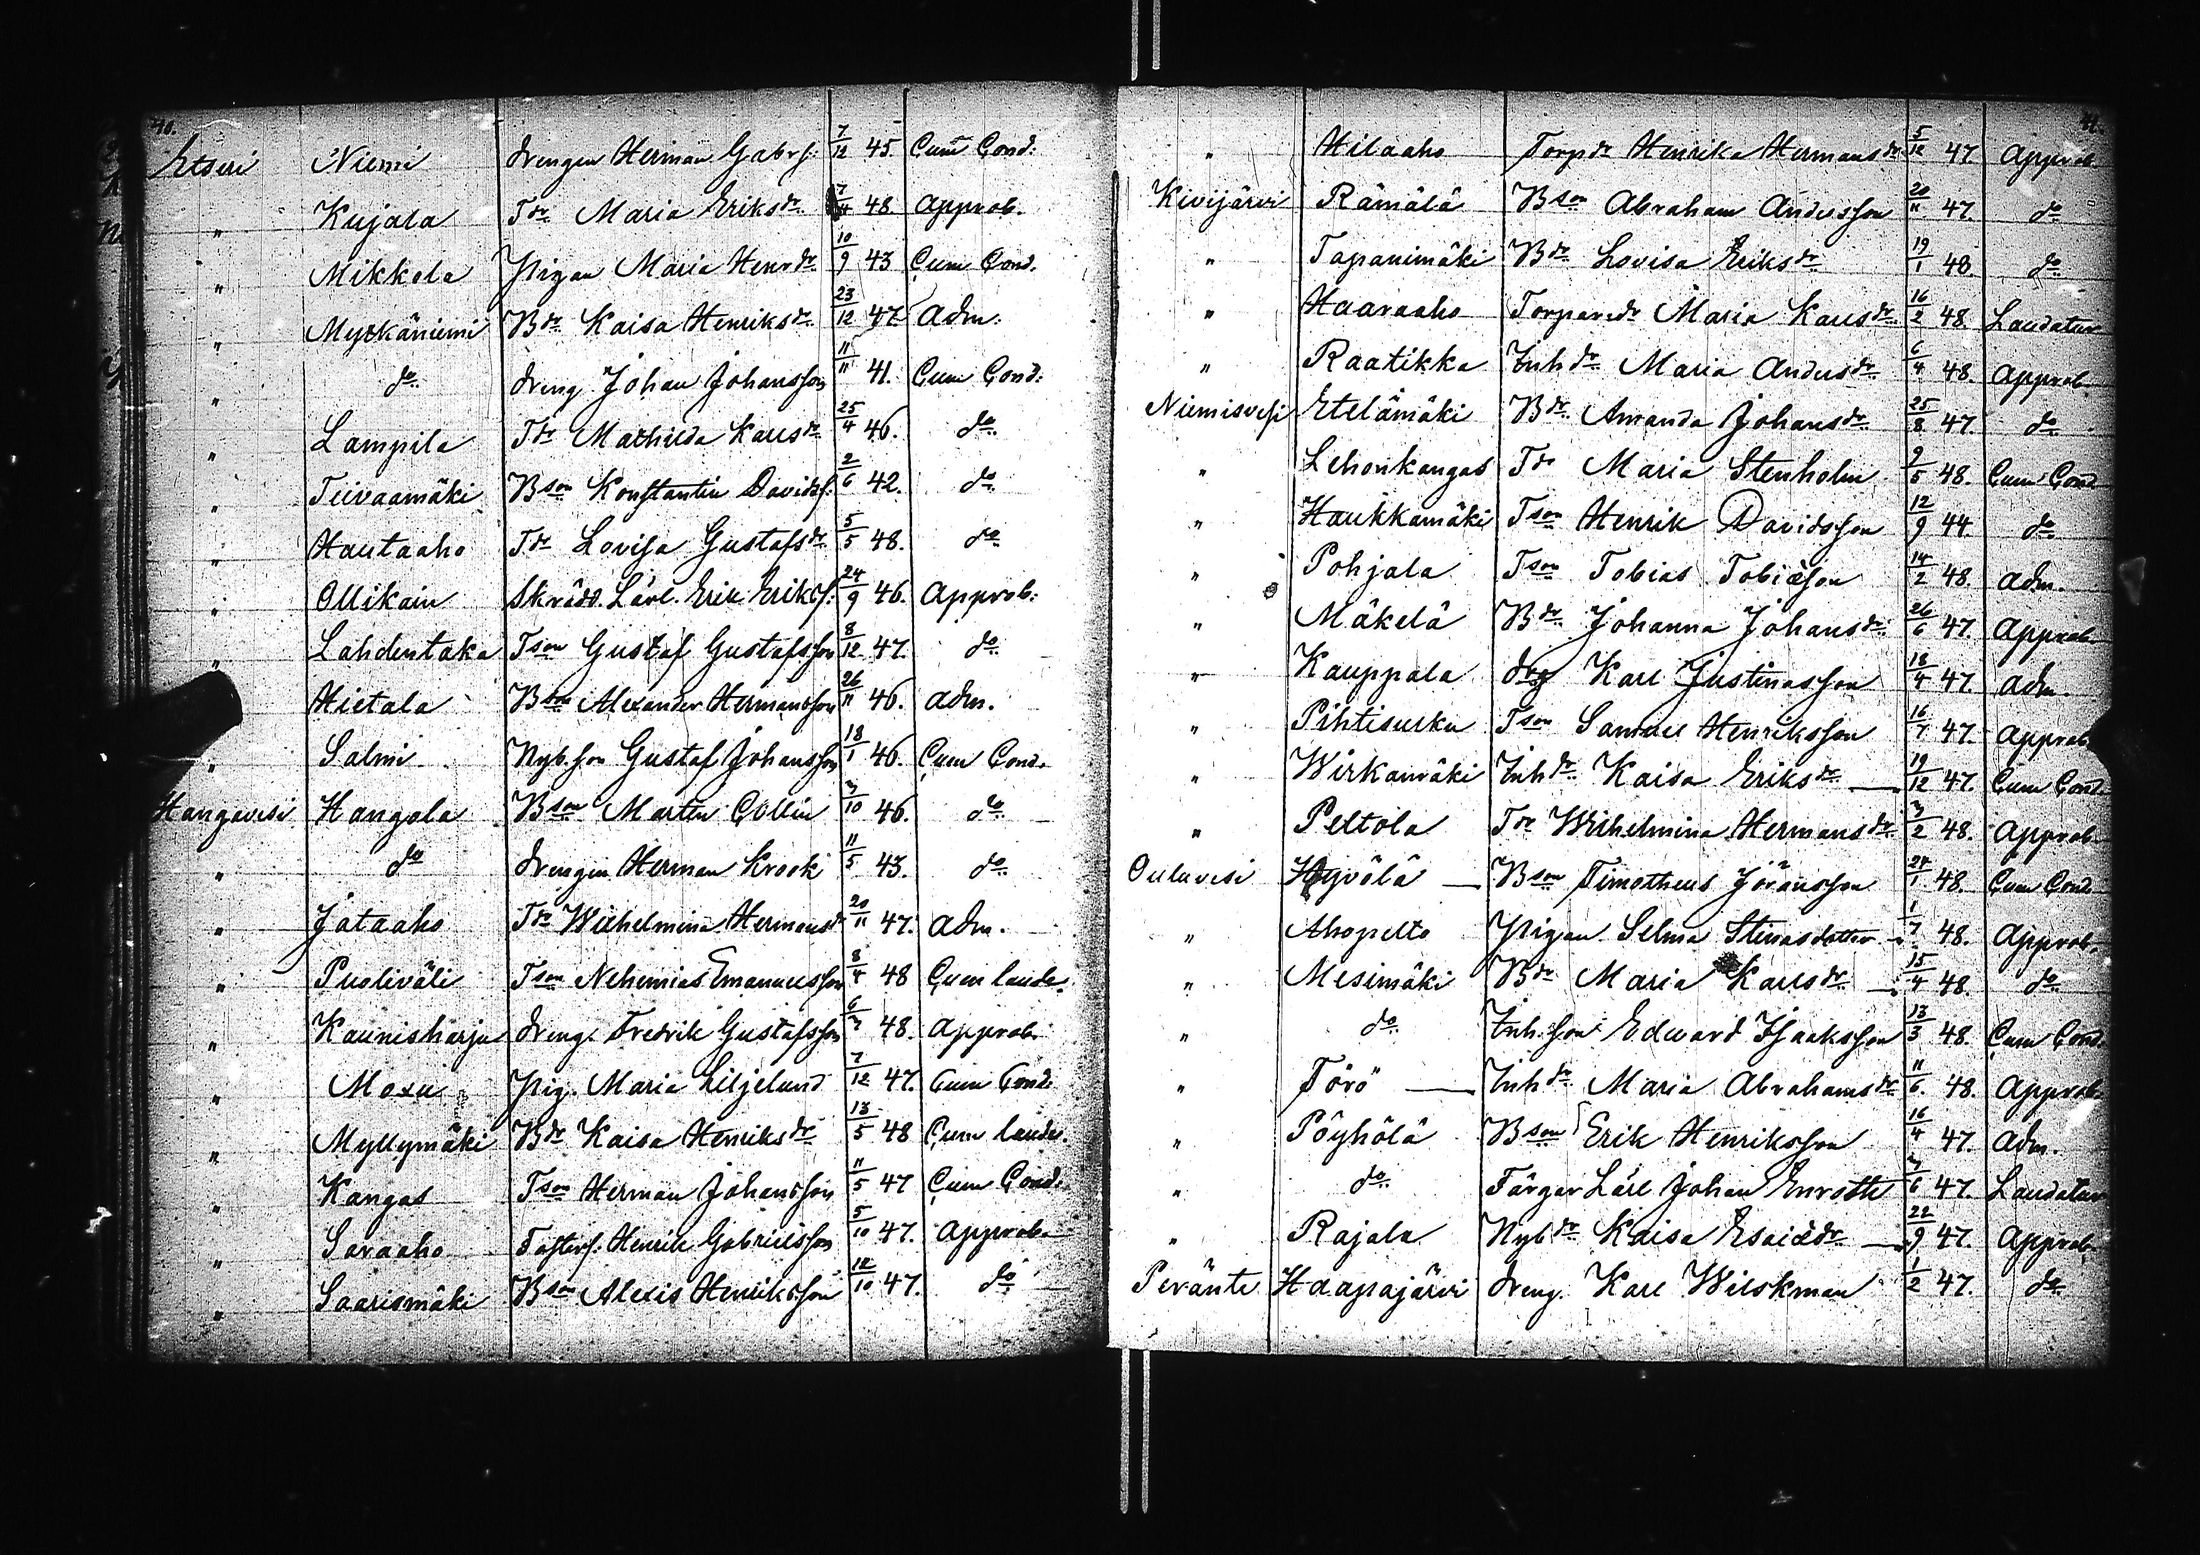 40.
Etseri Niemi drengen Herman Gabrs: 7/12 45. Cum Cond:
" Kujala Tdr Maria Eriksdr 7/4 48. approb.
" Mikkola Pigan Maria Henrdr 10/9 43 Cum Cond.
" Myrkäniemi Bdr Kaisa Henriksdr 23/12 47 adm.
" do dreng Johan Johansson 11/11 41. Cum Cond:
" Lampila Tdr Mathilda Karlsdr 25/4 46. do
" Teivaamäki Bson Konstantin Davidss: 2/6 42. do
" Hautaaho Tdr Lovisa Gustafsdr 5/5 48. do
" Ollikain Skrädd. Lärl. Erik Erikss: 24/9 46. Approb:
" Lahdentaka Tson Gustaf Gustafsson 8/12 47. do
" Hietala Bson Alexander Hermansson 26/11 46. adm.
" Salmi Nyb.son Gustaf Johansson 18/1 46. Cum Cond.
Hangavesi Hangola Bson Marten Collin 3/10 46. do
" do drengen Herman Krook 11/5 43. do
" Jätaaho Tdr Wilhelmina Hermansdr 20/11 47. adm.
" Puoliväli Tson Nehemias Emanuelsson 8/4 48 Cum laude.
" Kaunisharju dreng. Fredrik Gustafsson 6/3 48. approb.
" Moxu Pig. Maria Liljelund 7/12 47. Cum Cond.
" Myllymäki Bdr Kaisa Henriksdr 13/5 48 Cum laude.
" Kangas Tson Herman Johansson 11/5 47 Cum Cond.
" Saraaho Fosters: Henrik Gabrielsson 5/10 47. approb.
" Saarismäki Bson Alexis Henriksson 12/10 47. do
41.
" Hilaaho Torpdr Henrika Hermansdr 5/12 47 approb
Kivijärvi Rämälä Bson Abraham Andersson 20/11 47. do
" Tapanimäki Bdr Lovisa Eriksdr 19/1 48. do
" Haaraaho Torparedr Maria Karlsdr 16/2 48 Laudatur
" Raatikka Inhdr Maria Andersdr 6/4 48. approb
Niemisvesi Etelämäki Bdr Amanda Johansdr 25/8 47. do
" Lehonkangas Tdr Maria Stenholm 9/5 48. Cum Cond
" Haukkamäki Tson Henrik Davidsson 12/9 44. do
" Pohjala Tson Tobias Tobiæson 14/2 48. adm.
" Mäkelä Bdr Johanna Johansdr 26/6 47. approb
" Kauppala drg Karl Justinasson 18/4 47. adm.
" Pihtisulku Tson Samuel Henriksson 16/7 47. approb
" Wirkamäki Inhdr Kaisa Eriksdr 19/12 47. Cum Cond.
" Peltola Tdr Wilhelmina Hermansdr 3/2 48. approb
Ouluvesi Hyvölä Bson Timotheus Jöransson 24/1 48. Cum Cond.
" Ahopelto Pigan Selma Stinasdotter 1/7 48. approb.
" Mesimäki Bdr Maria Karlsdr 15/4 48. do
" do Inh.son Edward Isaaksson 13/3 48. Cum Cond.
" Törö Inhdr Maria Abrahamsdr 11/6. 48. approb.
" Pöyhölä Bson Erik Henriksson 16/4 47. adm.
" do Färgar Lärl Johan Enroth 3/6 47. Laudatur
" Rajala Nybdr Kaisa Esaiædr 22/9 47. approb
Peränte Haapajärvi dreng. Karl Wilskman 1/2 47. do